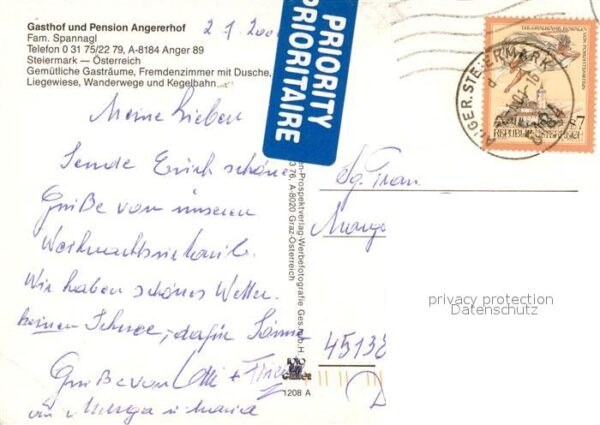 Gasthof und Pension Angererhof
Fam. Spannagl
Telefon 0 31 75/22 79, A-8184 Anger 89
Steiermark — Österreich
Gemütliche Gasträume, Fremdenzimmer mit Dusche,
Liegewiese, Wanderwege und Kegelbahn.
Meine Lieben
Sende Euch schöne
Grüße von unseren
Weihnachtsurlaub.
Wir haben schönes Wetter.
keinen Schnee, dafür Sonne
Grüße von +
PRIORITY
PRIORITAIRE
en-Prospektverlag-Werbefotografie Ges.m.b.H.
3 76, A-8020 Graz-Österreich
1208 A
Fam.
45138
REPUBLIK ÖSTERREICH
S 7
privacy protection
Datenschutz